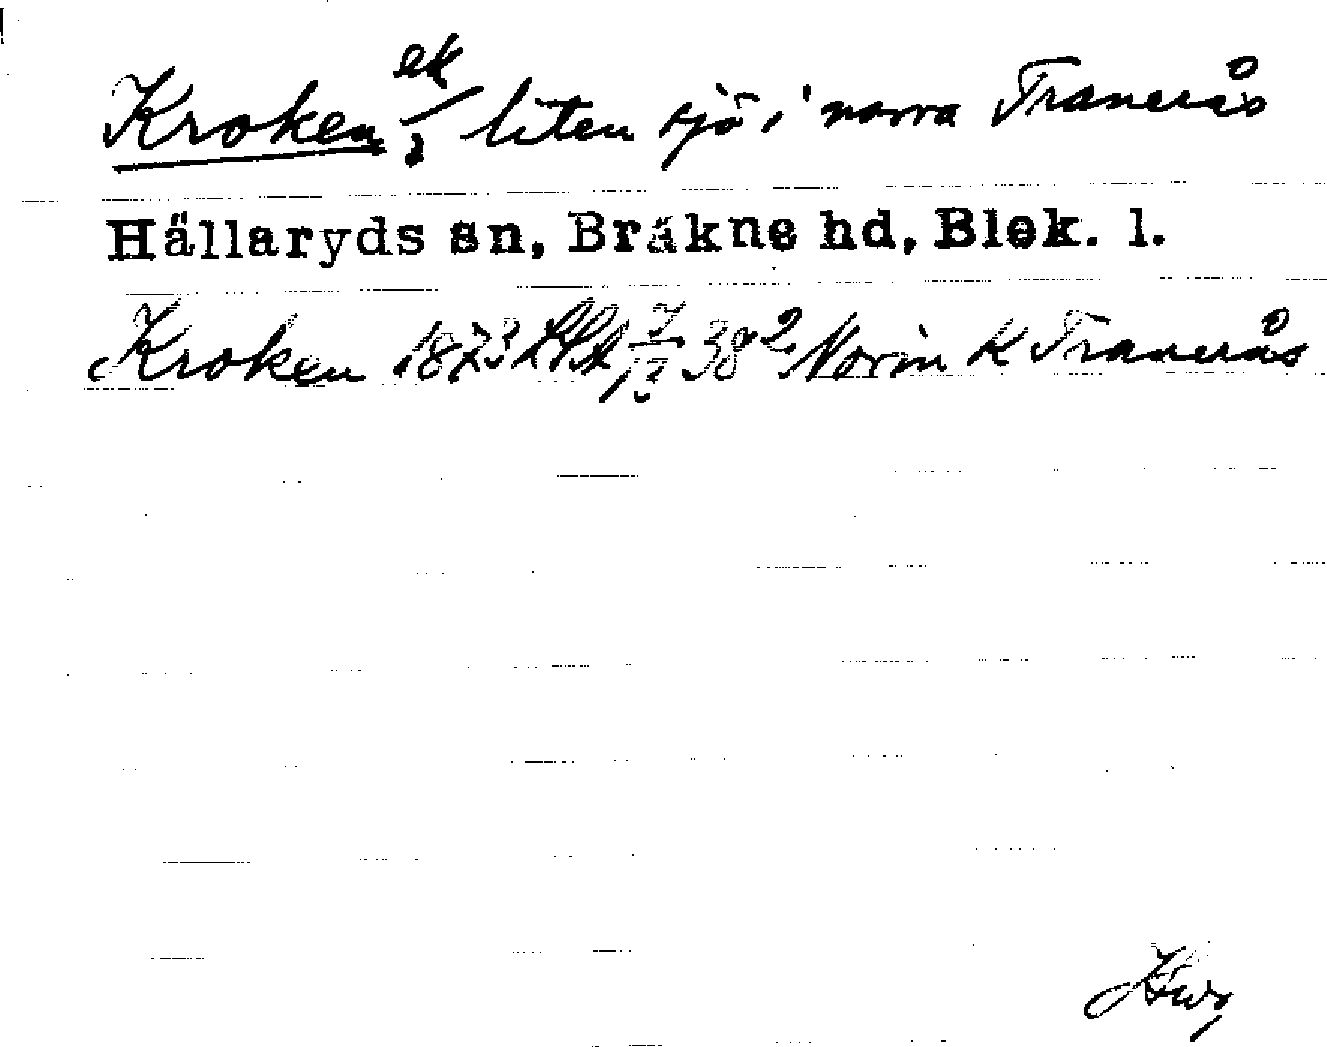 Kroken ek/3 liten sjö i norra Tranerås
Hällaryds sn, Bräkne hd, Blek. l.
Kroken 1873 38² Norin K Tranerås